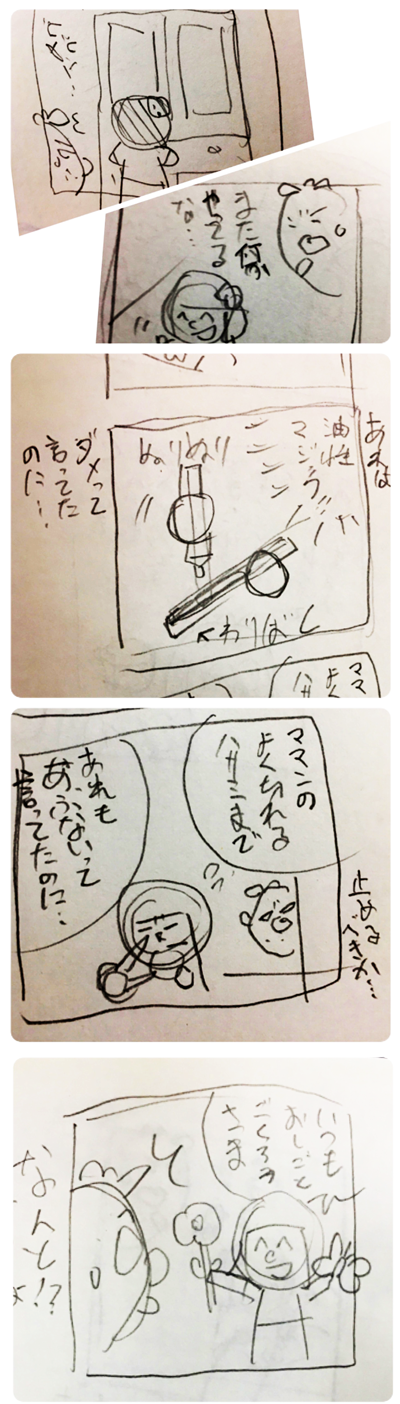 また何か
やってる
な…
あれは
油性
マジック
ぬりぬり
わりばし
ダメって
言ってた
のに…
ママ
よく
ハサ
止める
べきか…
ママンの
よく切れる
ハサミまで
あれも
あぶないって
言ってたのに…
いつも
おしごと
ごくろう
さま
なんと!?